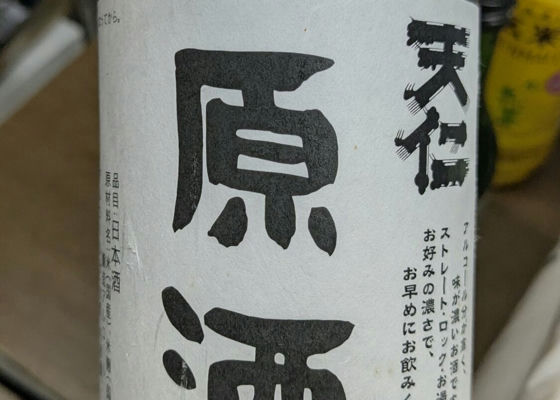 天仁
アルコール分が高く、
味が濃いお酒です
ストレート・ロック・お湯
お好みの濃さで、
お早めにお飲みく
原酒
品目:日本酒
原材料名:米(国産)
ってから。